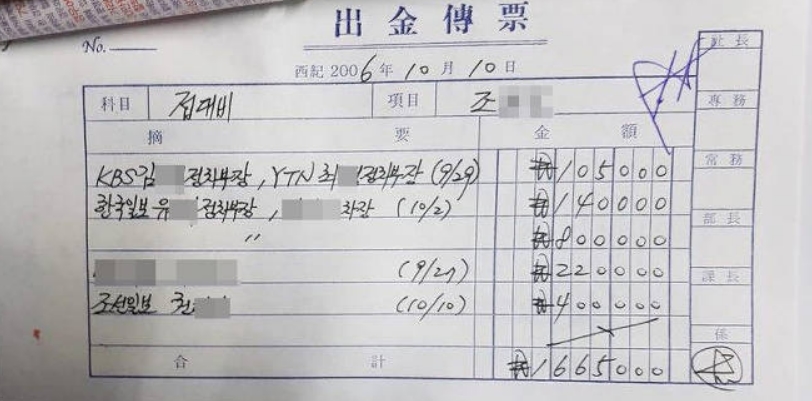 出金傳票
No.
西紀 2006年 10月 10日
社長
科目 접대비 項目 조
専務
摘要 金額
常務
KBS 김 정치부장, YTN 최 정치부장 (9/29) ₩105000
한국일보 유 정치부장, 차장 (10/2) ₩140000
部長
〃 ₩800000
(9/27) ₩220000
課長
조선일보 권 (10/10) ₩400000
係
合計 ₩1665000